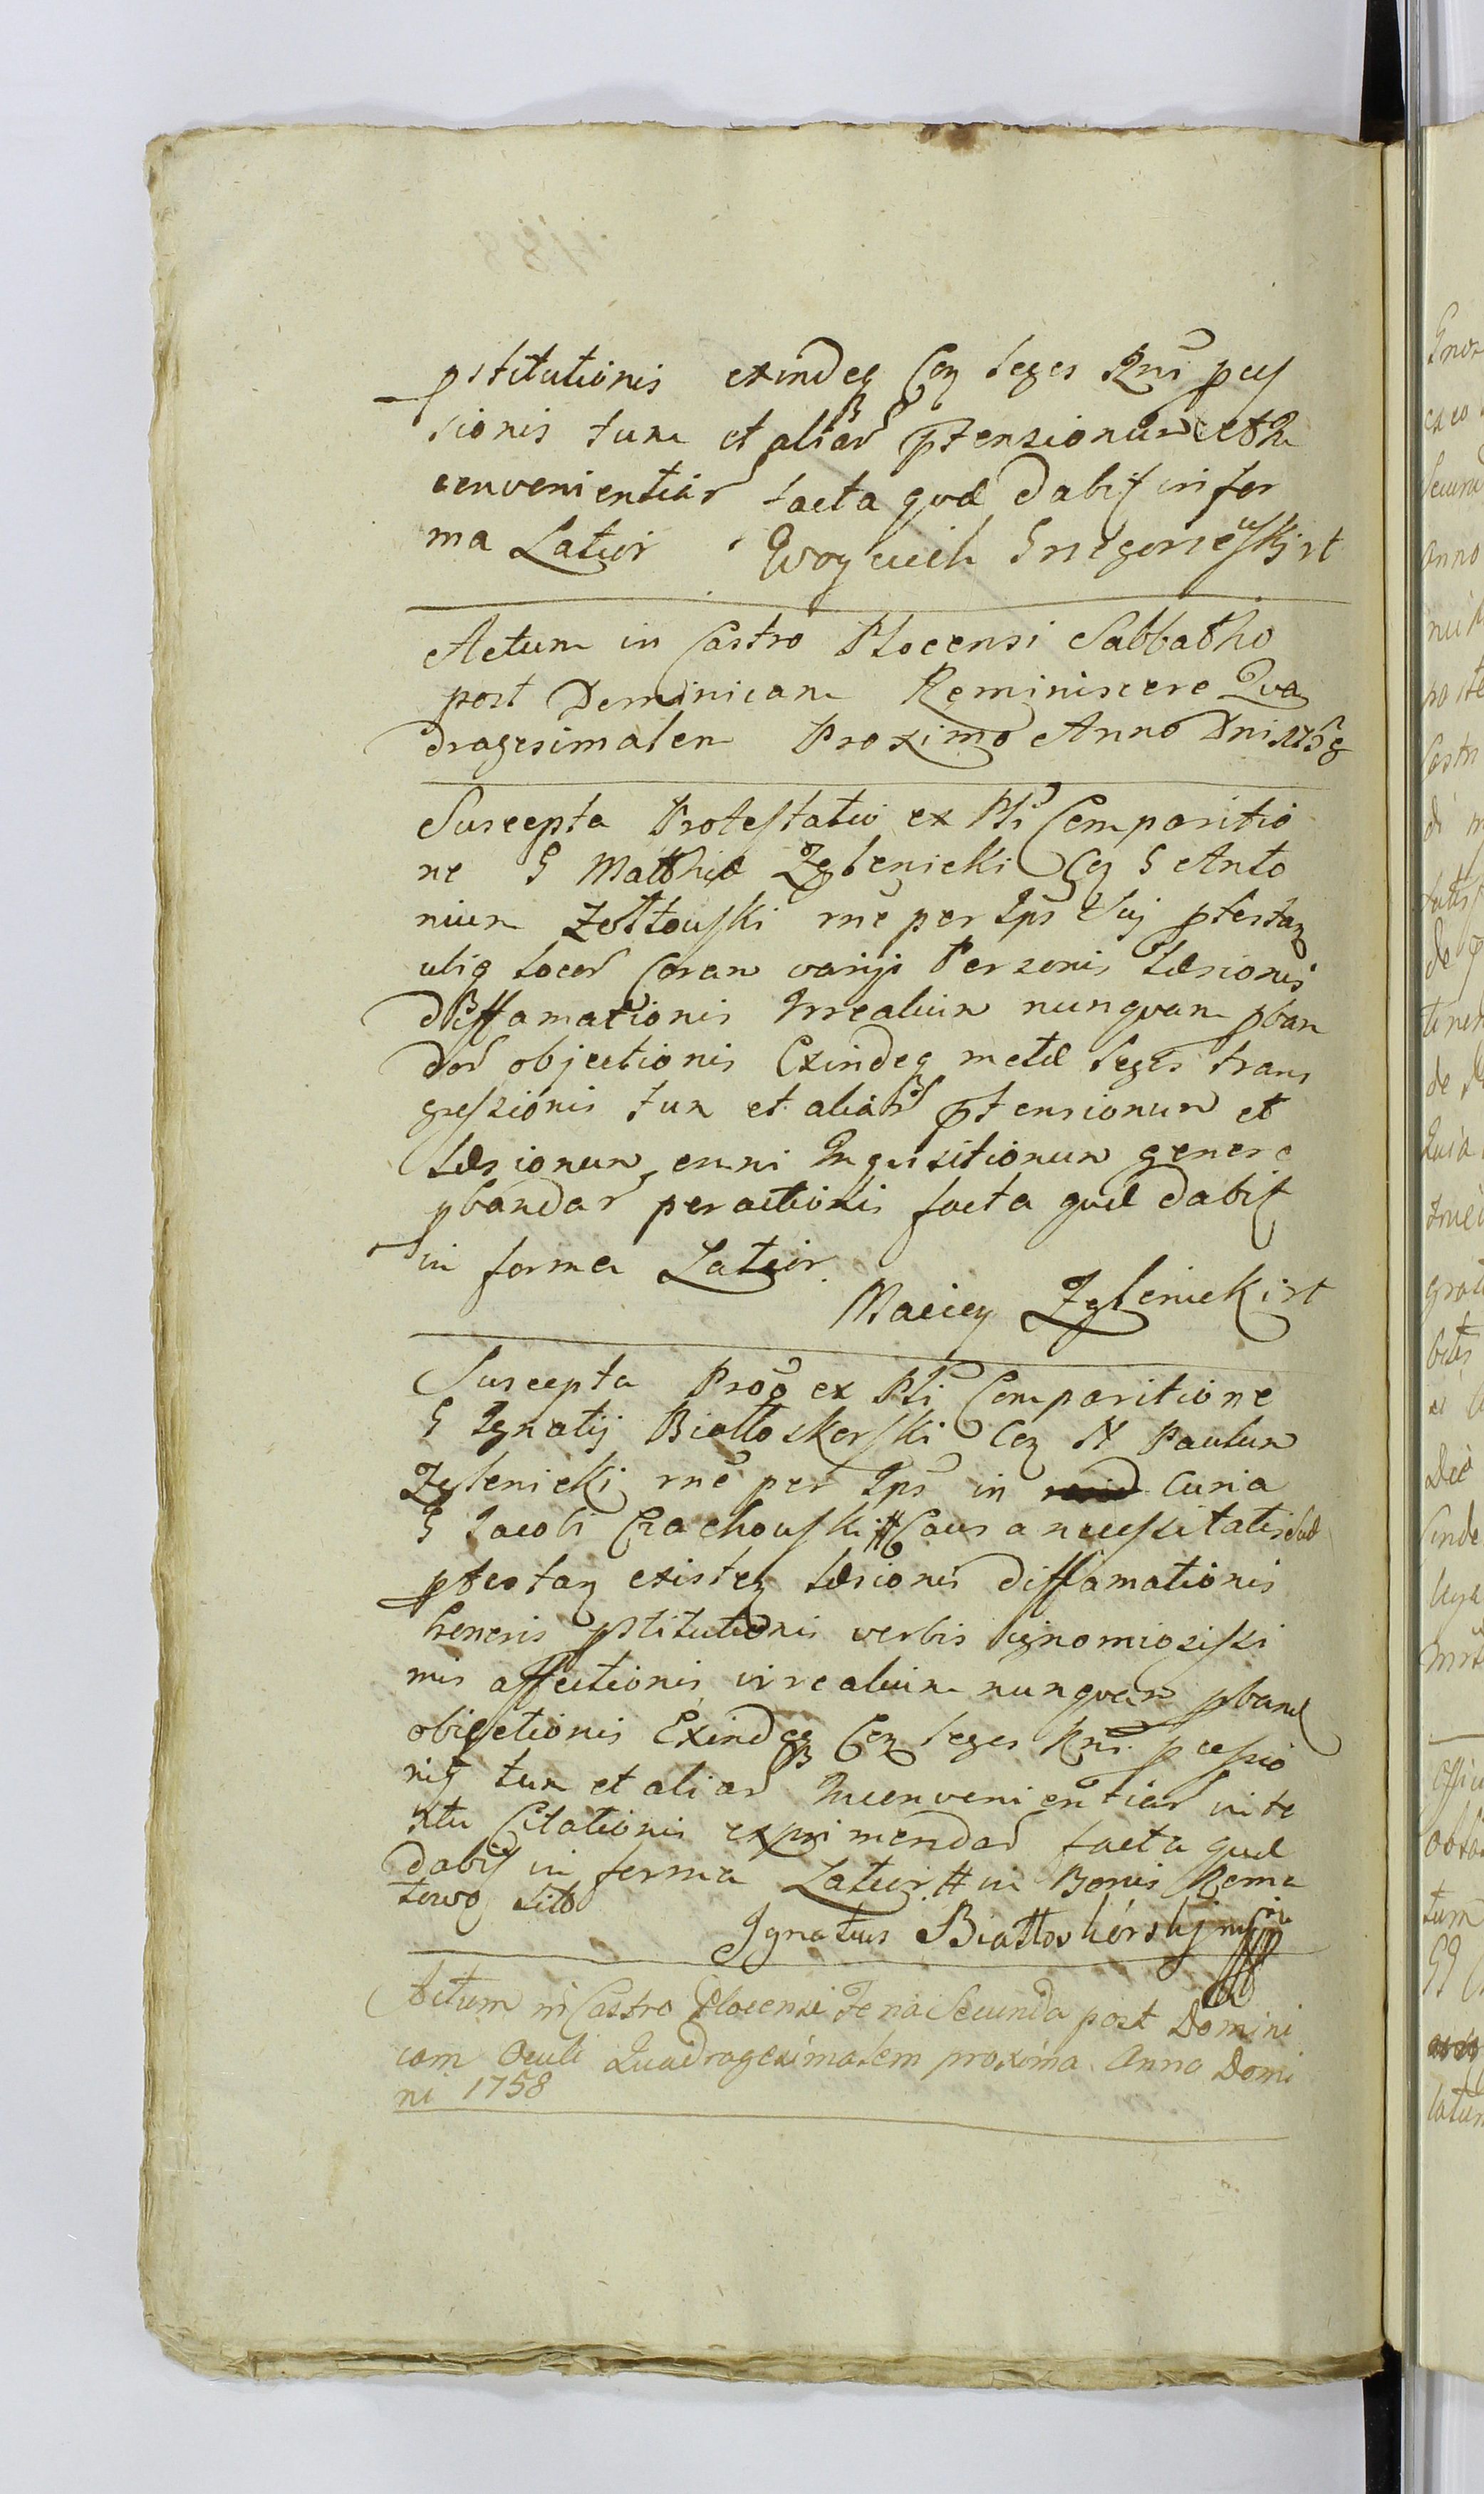 pstitutionis exindeq Con Leges Rni pces
sionis tum et aliar ptensionum et In
convenientiar facta quæ dabit in for
ma Latior Woyciech Grzegorzewski st
Actum in Castro Plocensi Sabbatho
post Dominicam Reminiscere Qua
dragesimalem Proximo Anno Dni 1758
Suscepta Protestatio ex Pli Comparitio
ne G Matthiæ Zglenicki Con G Anto
nium Zołtowski rne per Ips Suj ptestan
ubiq locor Coram varijs Personis Læsionis
diffamationis Irrealium nunquam pban
dor objectionis Exindeq metæ Leges trans
gressionis tum et aliar ptensionum et
Læsionum omni Inquisitionum genere
pbandar peractionis facta quæ dabit
in forma Latior
Maciey Zglenicki st
Suscepta Proo ex Pli Comparitione
G Ignatij Białłoskorski Con N Paulum
Zglenicki rne per Ips in Curia
G Jacobi Czachowski # Causa necessitatis suæ
ptestan existen Læsionis diffamationis
honoris pstitutionis verbis ignomiosissi
mis affectionis irrealium nunquam pband
objectionis Exindeq Con Leges Rni pcessio
nis tum et aliar Inconvenientiar in te
xtu Citationis exprimendar facta quæ
dabit in forma Latior # in Bonis Roma
towo sito
Ignatius Białłoskórski mp
Actum in Castro Plocensi Feria Secunda post Domini
cam Oculi Quadragesimalem proxima Anno Domi
ni 1758